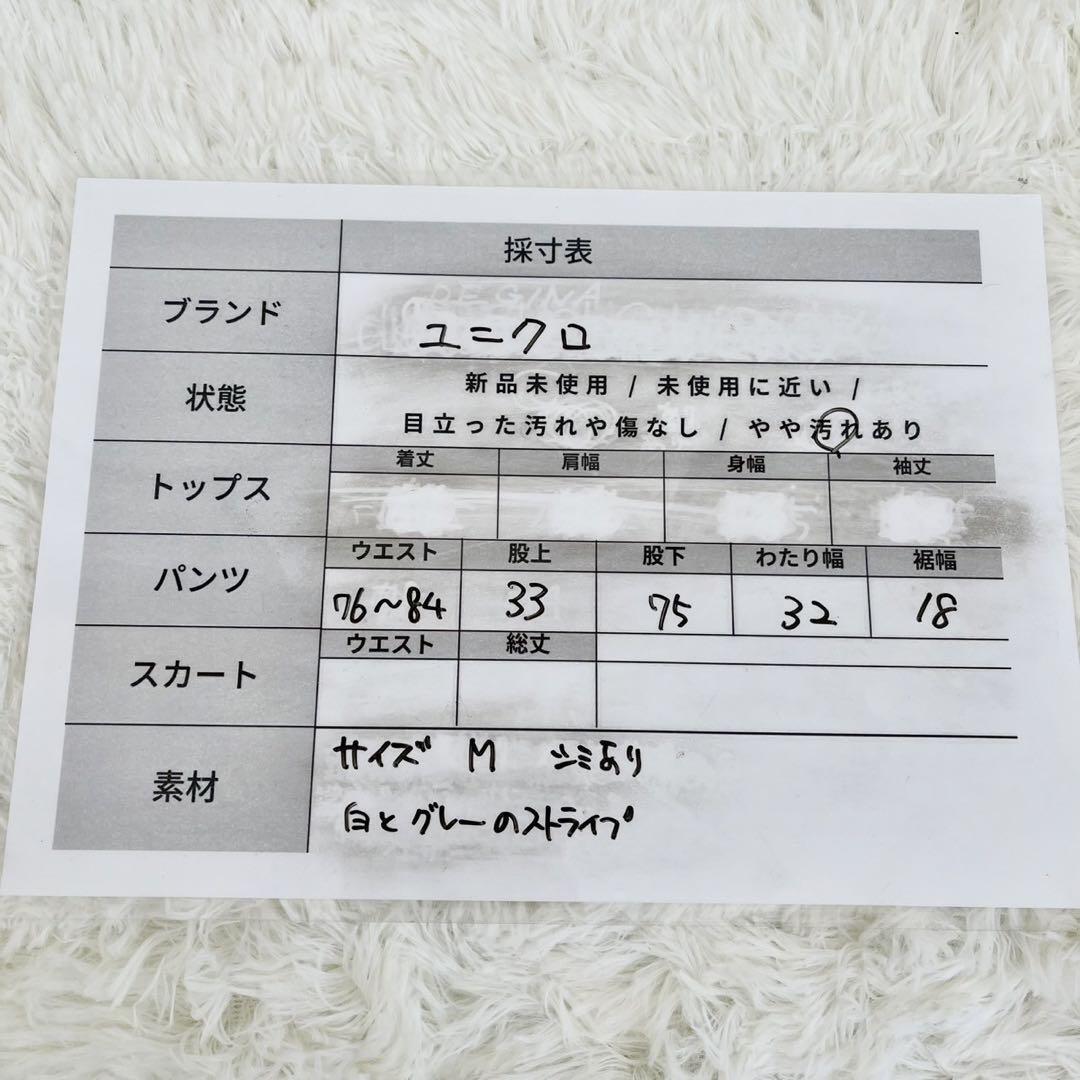 採寸表
ブランド
REGINA
ユニクロ
状態
新品未使用 / 未使用に近い /
目立った汚れや傷なし / やや汚れあり
トップス
着丈 肩幅 身幅 袖丈
パンツ
ウエスト 股上 股下 わたり幅 裾幅
76〜84 33 75 32 18
スカート
ウエスト 総丈
素材
サイズ M シミあり
白とグレーのストライプ